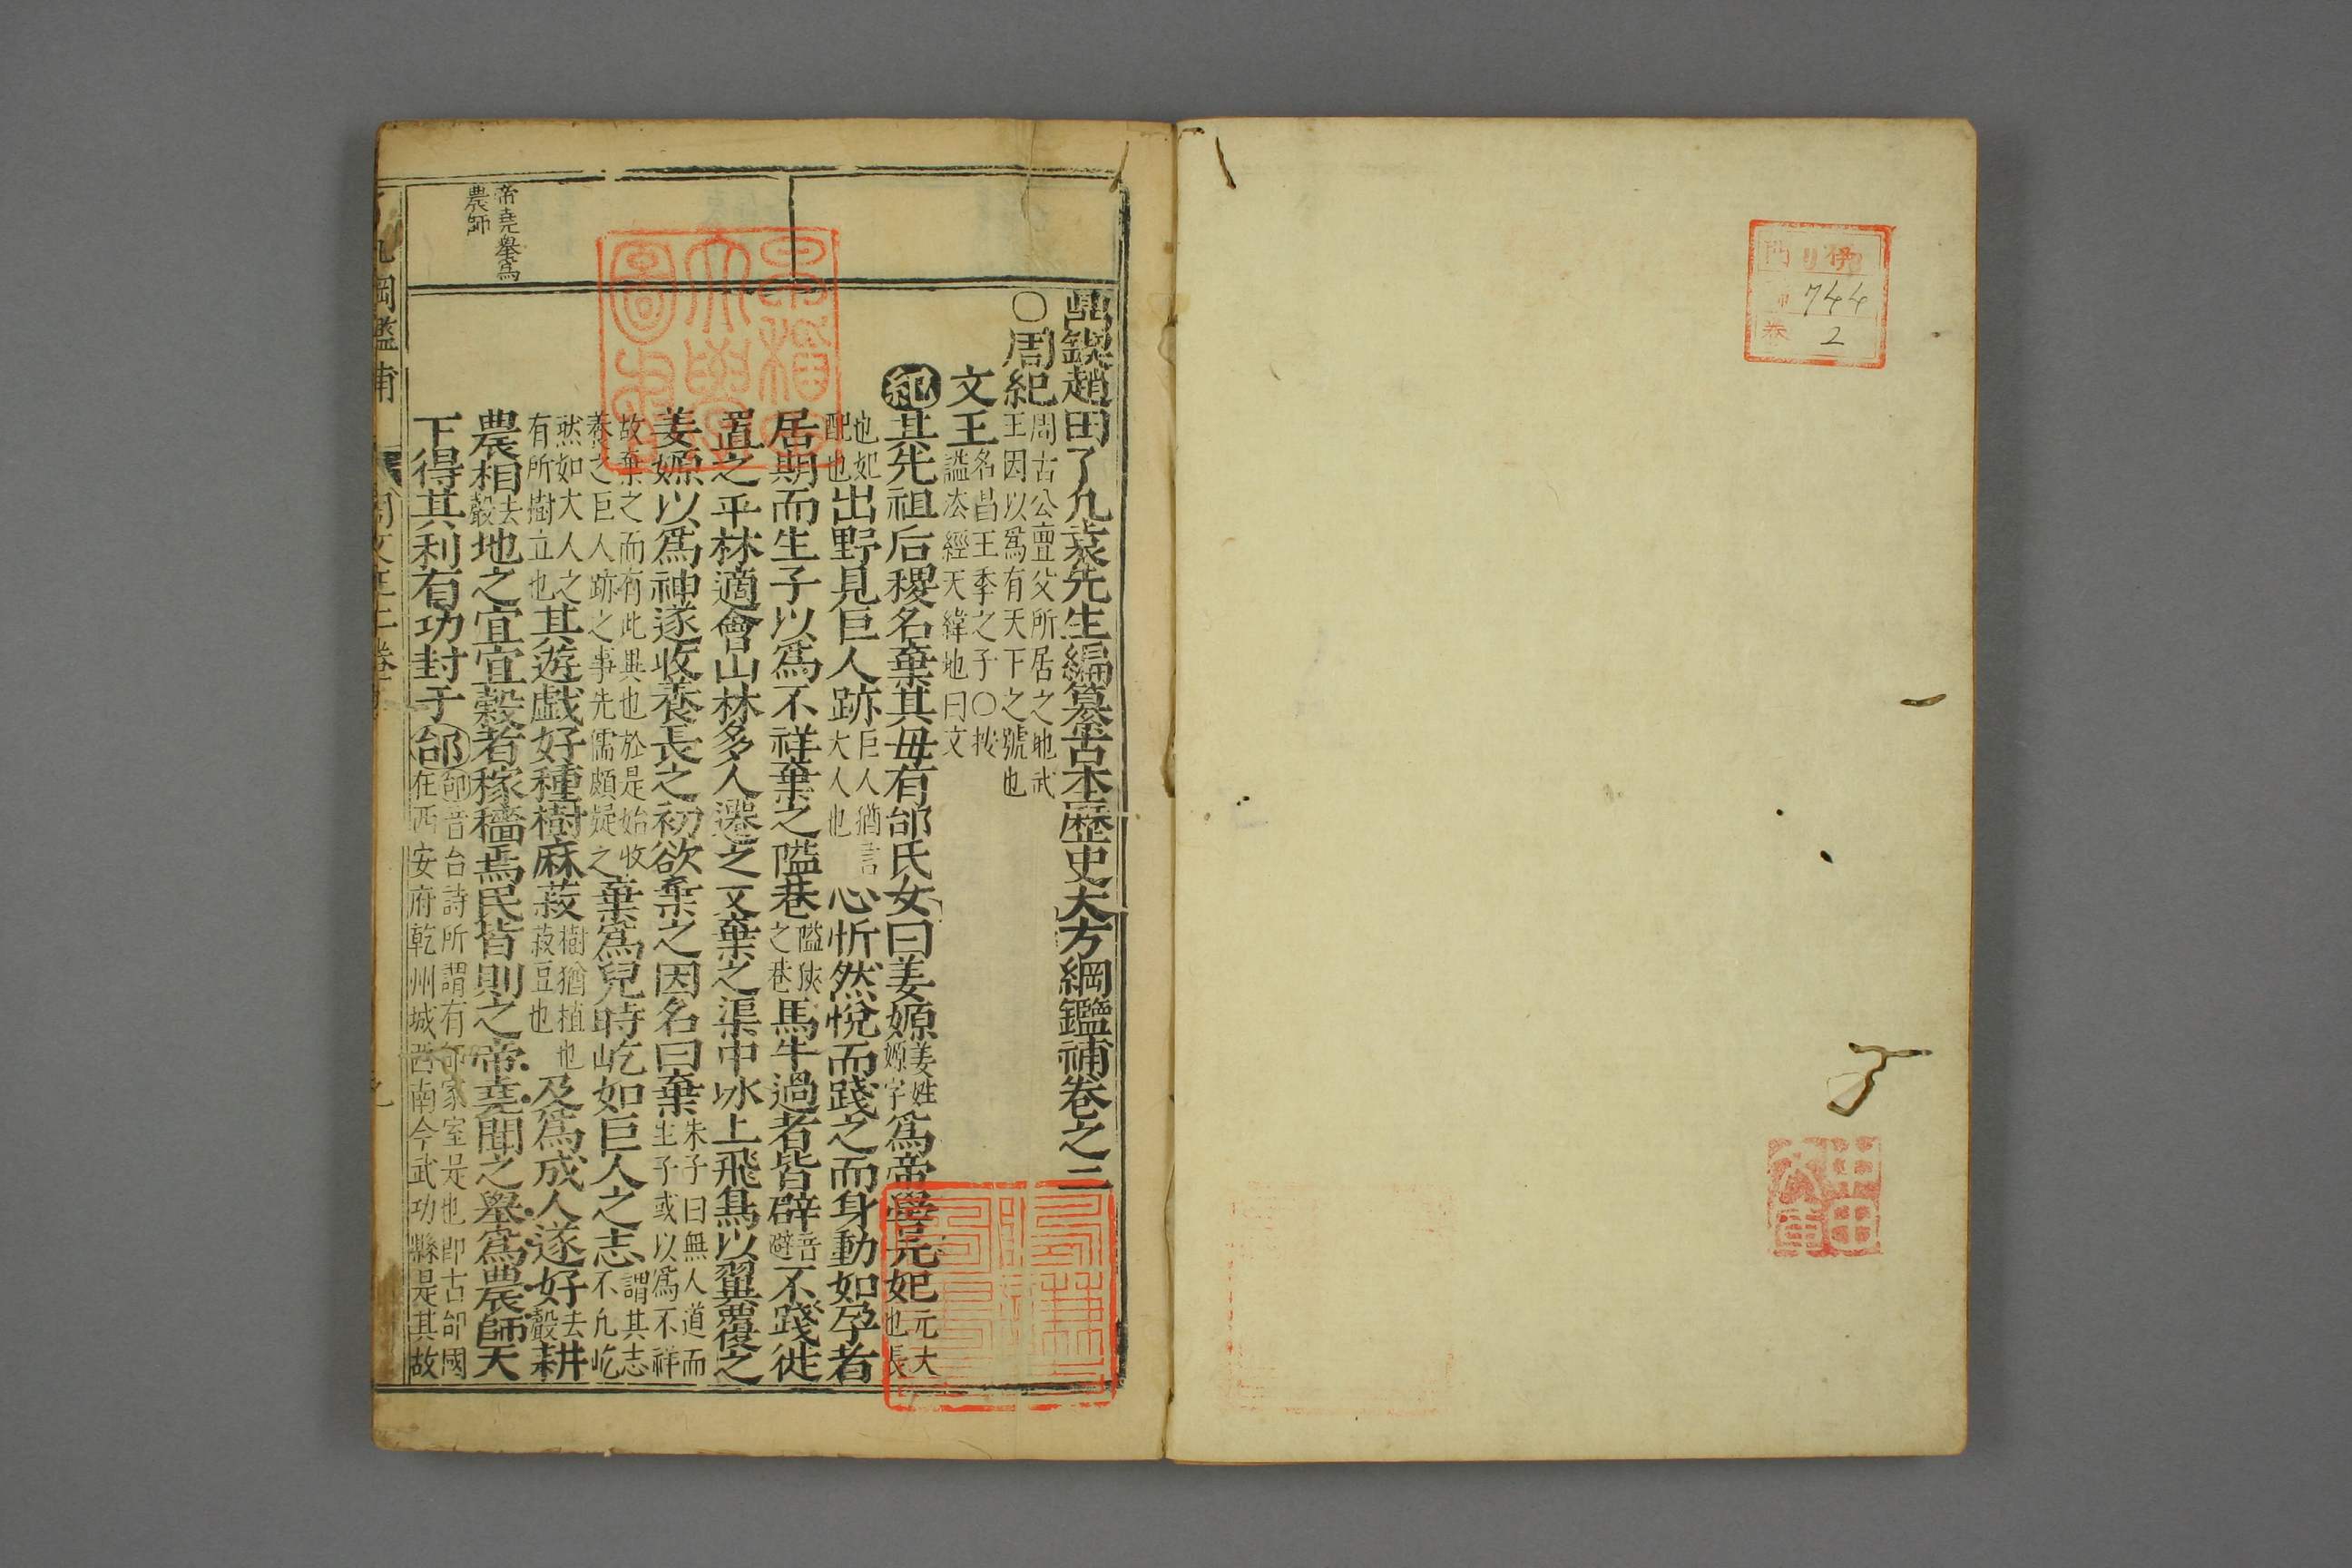 鼎鍥趙田了凡袁先生編纂古本歷史大方綱鑑補卷之二
○周紀 周古公亶父所居之地武王因以為有天下之號也
文王 名昌王季之子○按謚法經天緯地曰文
紀其先祖后稷名棄其母有邰氏女曰姜嫄 姜姓嫄字 為帝嚳元妃 元大也長
也妃配也 出野見巨人跡 巨人猶言大人也 心忻然悅而踐之而身動如孕者
居期而生子以為不祥棄之隘巷 隘狹之巷 馬牛過者皆辟 音避 不踐徙
置之平林適會山林多人遷之又棄之渠中冰上飛鳥以翼覆之
姜嫄以為神遂收養長之初欲棄之因名曰棄 朱子曰無人道而生子或以為不祥
故棄之而有此異也於是始收養之巨人跡之事先儒頗疑之 棄為兒時屹如巨人之志 謂其志不凡屹
然如大人之有所樹立也 其遊戲好種樹麻菽 樹猶植也菽豆也 及為成人遂好 去聲 耕
農相 去聲 地之宜宜穀者稼穡焉民皆則之帝堯聞之舉為農師天
下得其利有功封于邰 邰音台詩所謂有邰家室是也即古邰國在西安府乾州城西南今武功縣是其故
帝堯舉為
農師
744
卷 2